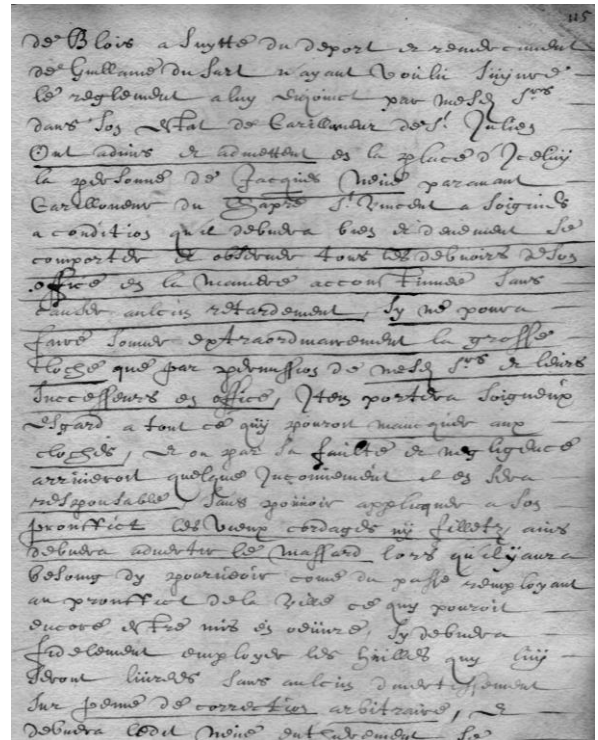 115
de Blois a suytte du deport et remerciement
de Guillaume du Sart n'ayant voulu suyvre
le reglement a luy enjoinct par mesd. Srs
dans son estat de Carilloneur de St. Julien
Ont admis et admettent en la place d'Iceluy
la personne de Jacques paravant
Carilloneur du St. Vincent a Soignies
a condition qu'il debvera bien et deuement se
comporter et observer tous les debvoirs de son
office en la maniere accoustumée sans
causer aulcun retardement, sy ne poura
faire sonner extraordinairement la grosse
cloche que par permission de mesd. Srs et leurs
successeurs en office, Item portera soigneux
esgard a tout ce quy pouroit mancquer aux
cloches, et ou par sa faulte et negligence
arriveroit quelque Inconvenient il en sera
responsable, sans pouvoir applicquer a son
prouffict les vieux cordages ny filletz, ains
debvera advertir le massard lors qu'il y aura
besoing d'y pourveoir come du passé remployant
au prouffict de la ville ce quy pouroit
encore estre mis en oeuvre, sy debvera
fidelement employer les huilles quy luy
seront livrées sans aulcun divertissement
sur peine de correction arbitraire, et
debvera ledit entierement se